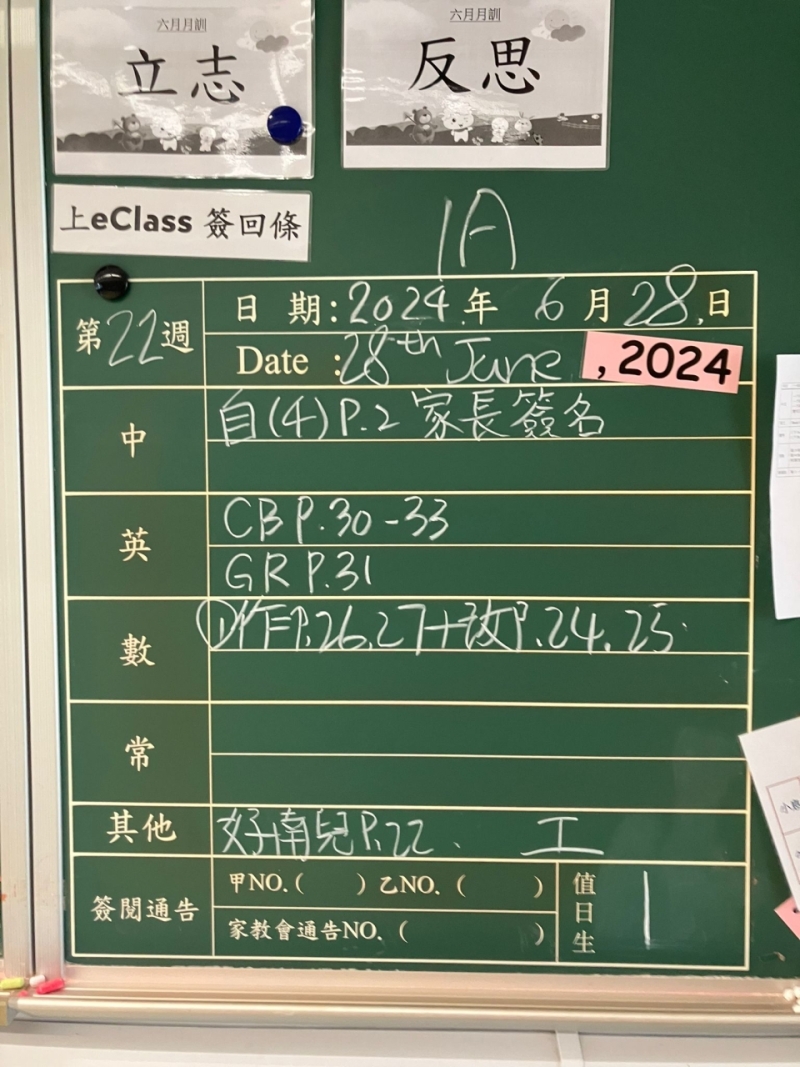 六月月訓
立志
六月月訓
反思
上eClass 簽回條
1A
第22週
日 期:2024.年 6 月 28,日
Date :28th June , 2024
中
自(4)P.2 家長簽名
英
CB P.30-33
GR P.31
數
①作P.26,27+改P.24.25
常
其他
好南兒P.22 、 工
簽閱通告
甲NO.( )乙NO. ( )
家教會通告NO. ( )
值日生
1